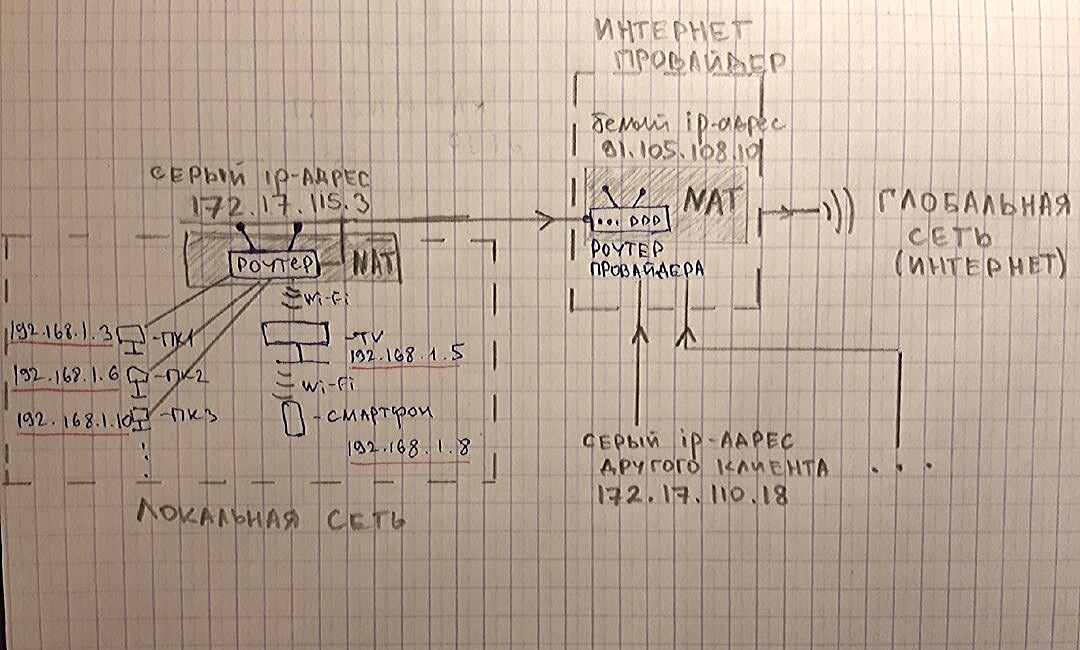 ИНТЕРНЕТ
ПРОВАЙДЕР
белый ip-адрес
91.105.108.10
NAT
РОУТЕР
ПРОВАЙДЕРА
ГЛОБАЛЬНАЯ
СЕТЬ
(ИНТЕРНЕТ)
СЕРЫЙ ip-АДРЕС
172.17.115.3
РОУТЕР
NAT
Wi-Fi
192.168.1.3
-ПК1
-TV
192.168.1.5
192.168.1.6
-ПК2
Wi-Fi
192.168.1.10
-ПК3
-СМАРТФОН
192.168.1.8
ЛОКАЛЬНАЯ СЕТЬ
СЕРЫЙ ip-АДРЕС
ДРУГОГО КЛИЕНТА
172.17.110.18
...